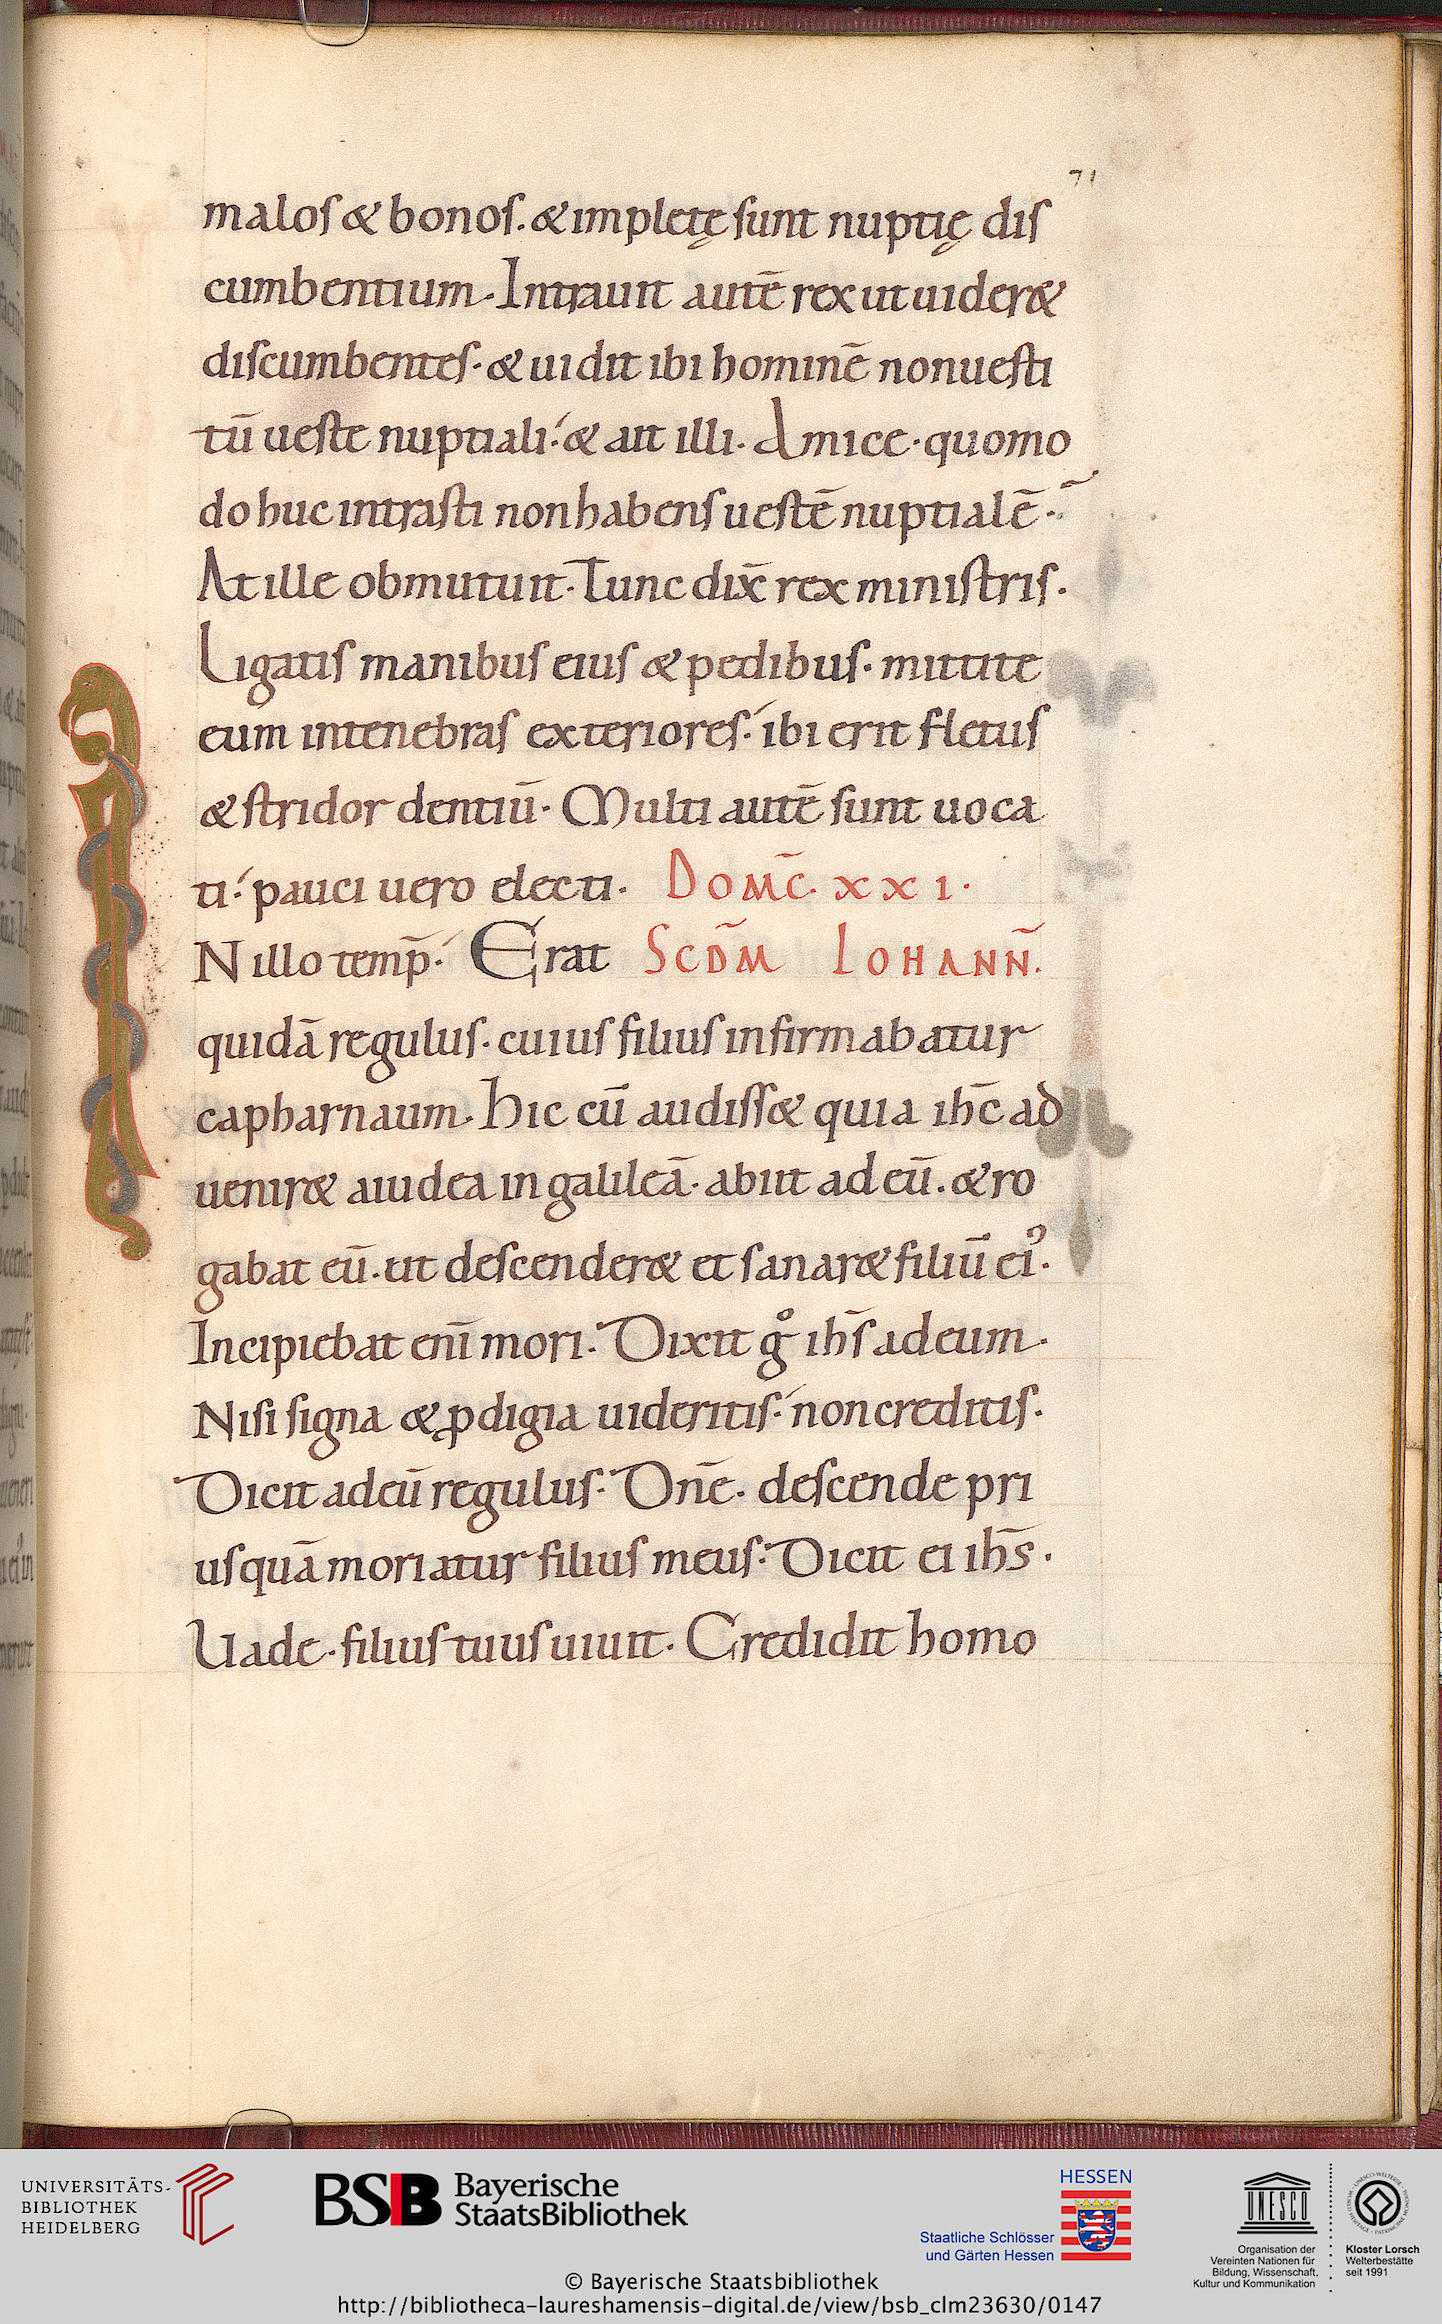 71
malos & bonos. & impletę sunt nuptię dis
cumbentium. Intrauit autē rex ut uider&
discumbentes. & uidit ibi hominē non uesti
tū ueste nuptiali. & ait illi. Amice. quomo
do huc intrasti non habens uestē nuptialē.
At ille obmutuit. Tunc dix̄ rex ministris.
Ligatis manibus eius & pedibus. mittite
eum in tenebras exteriores. ibi erit fletus
& stridor dentiū. Multi autē sunt uoca
ti. pauci uero electi. DOM̄C. XXI.
N illo temp̄. Erat SCDM̄ IOHANN̄.
quidā regulus. cuius filius infirmabatur
capharnaum. Hic cū audiss& quia ih̄c ad
uenir& a iudea in galileā. abiit ad eū. & ro
gabat eū. ut descender& et sanar& filiū ei᾿.
Incipiebat enī mori. Dixit gͦ ih̄s ad eum.
Nisi signa & ꝓdigia uideritis. non creditis.
Dicit ad eū regulus. Dn̄e. descende pri
usquā moriatur filius meus. Dicit ei ih̄s.
Uade. filius tuus uiuit. Credidit homo
UNIVERSITÄTS-
BIBLIOTHEK
HEIDELBERG
BSB Bayerische
StaatsBibliothek
HESSEN
Staatliche Schlösser
und Gärten Hessen
UNESCO
Organisation der
Vereinten Nationen für
Bildung, Wissenschaft,
Kultur und Kommunikation
Kloster Lorsch
Welterbestätte
seit 1991
© Bayerische Staatsbibliothek
http://bibliotheca-laureshamensis-digital.de/view/bsb_clm23630/0147